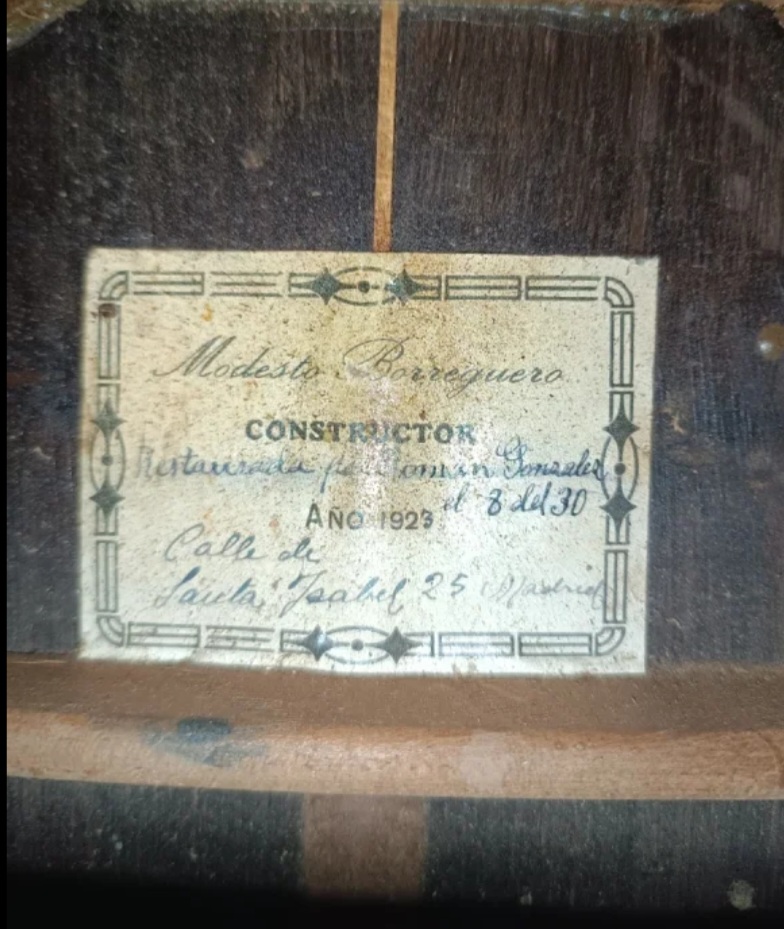 Modesto Borreguero
CONSTRUCTOR
Restaurada por Roman Gonzalez
el 8 del 30
AÑO 1923
Calle de
Santa Ysabel 25 Madrid